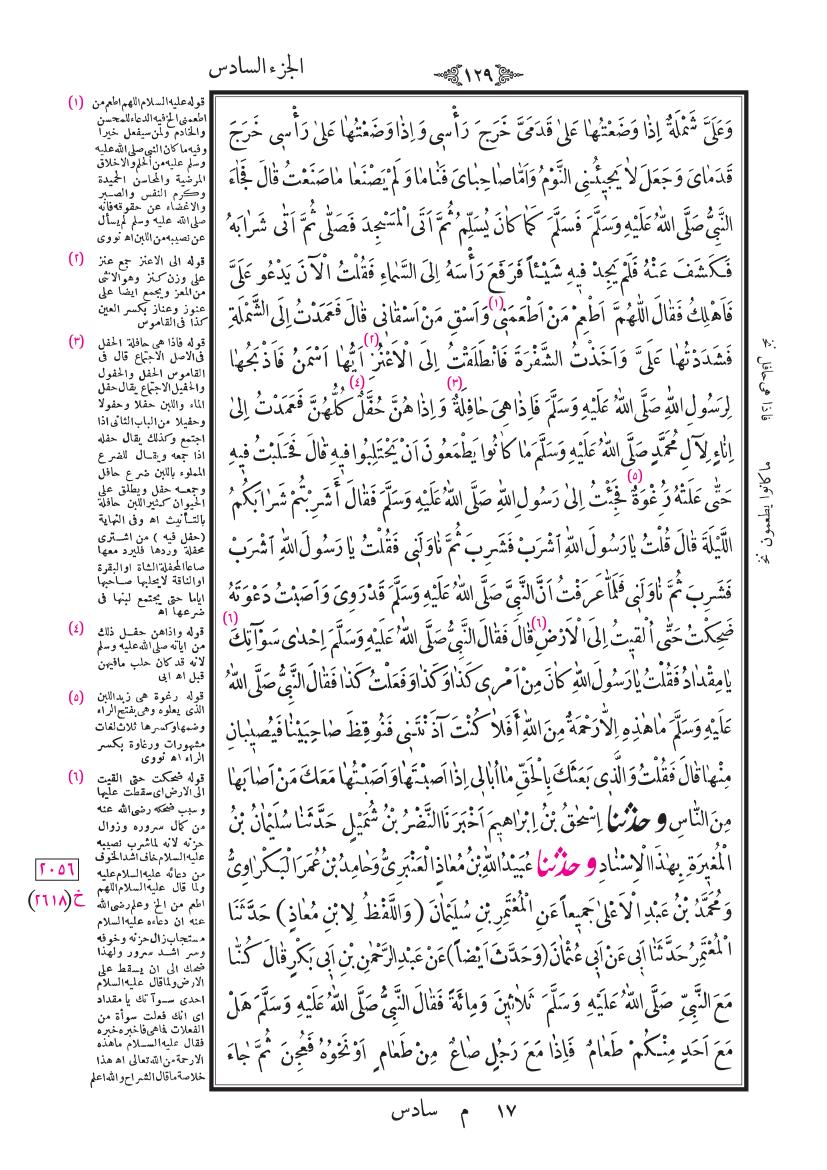 الجزء السادس
١٢٩
وَعَلَىَّ شَمْلَةٌ اِذَا وَضَعْتُهَا عَلىٰ قَدَمَىَّ خَرَجَ رَأْسى وَاِذَا وَضَعْتُهَا عَلىٰ رَأْسى خَرَجَ
قَدَمَاىَ وَجَعَلَ لَا يَجِيئُنِى النَّوْمُ وَاَمَّا صَاحِبَاىَ فَنَامَا وَلَمْ يَصْنَعَا مَا صَنَعْتُ قَالَ فَجَاءَ
النَّبِىُّ صَلَّى اللّٰهُ عَلَيْهِ وَسَلَّمَ فَسَلَّمَ كَمَا كَانَ يُسَلِّمُ ثُمَّ اَتَى الْمَسْجِدَ فَصَلّٰى ثُمَّ اَتٰى شَرَابَهُ
فَكَشَفَ عَنْهُ فَلَمْ يَجِدْ فِيهِ شَيْئاً فَرَفَعَ رَأْسَهُ اِلَى السَّمَاءِ فَقُلْتُ الْآنَ يَدْعُو عَلَىَّ
فَاَهْلِكُ فَقَالَ اللّٰهُمَّ اَطْعِمْ مَنْ اَطْعَمَنِى (١) وَاَسْقِ مَنْ اَسْقَانِى قَالَ فَعَمَدْتُ اِلَى الشَّمْلَةِ
فَشَدَدْتُهَا عَلَىَّ وَاَخَذْتُ الشَّفْرَةَ فَانْطَلَقْتُ اِلَى الْاَعْنُزِ (٢) اَيُّهَا اَسْمَنُ فَاَذْبَحُهَا
لِرَسُولِ اللّٰهِ صَلَّى اللّٰهُ عَلَيْهِ وَسَلَّمَ فَاِذَا هِىَ حَافِلَةٌ (٣) وَاِذَا هُنَّ حُفَّلٌ (٤) كُلُّهُنَّ فَعَمَدْتُ اِلىٰ
اِنَاءٍ لِآلِ مُحَمَّدٍ صَلَّى اللّٰهُ عَلَيْهِ وَسَلَّمَ مَا كَانُوا يَطْمَعُونَ اَنْ يَحْتَلِبُوا فِيهِ قَالَ فَحَلَبْتُ فِيهِ
حَتّٰى عَلَتْهُ رَغْوَةٌ (٥) فَجِئْتُ اِلىٰ رَسُولِ اللّٰهِ صَلَّى اللّٰهُ عَلَيْهِ وَسَلَّمَ فَقَالَ أَشَرِبْتُمْ شَرَابَكُمُ
اللَّيْلَةَ قَالَ قُلْتُ يَا رَسُولَ اللّٰهِ اشْرَبْ فَشَرِبَ ثُمَّ نَاوَلَنِى فَقُلْتُ يَا رَسُولَ اللّٰهِ اشْرَبْ
فَشَرِبَ ثُمَّ نَاوَلَنِى فَلَمَّا عَرَفْتُ اَنَّ النَّبِىَّ صَلَّى اللّٰهُ عَلَيْهِ وَسَلَّمَ قَدْ رَوِىَ وَاَصَبْتُ دَعْوَتَهُ
ضَحِكْتُ حَتّٰى اُلْقِيتُ اِلَى الْاَرْضِ (٦) قَالَ فَقَالَ النَّبِىُّ صَلَّى اللّٰهُ عَلَيْهِ وَسَلَّمَ اِحْدٰى سَوْآتِكَ (٦)
يَا مِقْدَادُ فَقُلْتُ يَا رَسُولَ اللّٰهِ كَانَ مِنْ اَمْرِى كَذَا وَكَذَا وَفَعَلْتُ كَذَا فَقَالَ النَّبِىُّ صَلَّى اللّٰهُ
عَلَيْهِ وَسَلَّمَ مَا هٰذِهِ اِلَّا رَحْمَةٌ مِنَ اللّٰهِ أَفَلَا كُنْتَ آذَنْتَنِى فَنُوقِظَ صَاحِبَيْنَا فَيُصِيبَانِ
مِنْهَا قَالَ فَقُلْتُ وَالَّذِى بَعَثَكَ بِالْحَقِّ مَا اُبَالِى اِذَا اَصَبْتَهَا وَاَصَبْتُهَا مَعَكَ مَنْ اَصَابَهَا
مِنَ النَّاسِ وحدثنا اِسْحٰقُ بْنُ اِبْرَاهِيمَ اَخْبَرَنَا النَّضْرُ بْنُ شُمَيْلٍ حَدَّثَنَا سُلَيْمَانُ بْنُ
الْمُغِيرَةِ بِهٰذَا الْاِسْنَادِ وحدثنا عُبَيْدُ اللّٰهِ بْنُ مُعَاذٍ الْعَنْبَرِىُّ وَحَامِدُ بْنُ عُمَرَ الْبَكْرَاوِىُّ
وَمُحَمَّدُ بْنُ عَبْدِ الْاَعْلىٰ جَمِيعاً عَنِ الْمُعْتَمِرِ بْنِ سُلَيْمَانَ ( وَاللَّفْظُ لِابْنِ مُعَاذٍ ) حَدَّثَنَا
الْمُعْتَمِرُ حَدَّثَنَا اَبِى عَنْ اَبِى عُثْمَانَ (وَحَدَّثَ اَيْضاً) عَنْ عَبْدِ الرَّحْمٰنِ بْنِ اَبِى بَكْرٍ قَالَ كُنَّا
مَعَ النَّبِىِّ صَلَّى اللّٰهُ عَلَيْهِ وَسَلَّمَ ثَلَاثِينَ وَمِائَةً فَقَالَ النَّبِىُّ صَلَّى اللّٰهُ عَلَيْهِ وَسَلَّمَ هَلْ
مَعَ اَحَدٍ مِنْكُمْ طَعَامٌ فَاِذَا مَعَ رَجُلٍ صَاعٌ مِنْ طَعَامٍ اَوْ نَحْوُهُ فَعُجِنَ ثُمَّ جَاءَ
فاذا هى حافل نخ
ما كانوا يطعمون نخ
(١) قوله عليه السلام اللهم اطعم من
اطعمنى الخ فيه الدعاء للمحسن
والخادم ولمن سيفعل خيرا
وفيه ما كان النبى صلى الله عليه
وسلم عليه من الحلم والاخلاق
المرضية والمحاسن الحميدة
وكرم النفس والصبر
والاغضاء عن حقوقه فانه
صلى الله عليه وسلم لم يسأل
عن نصيبه من اللبن اه نووى
(٢) قوله الى الاعنز جمع عنز
على وزن كنز وهو الانثى
من المعز ويجمع ايضا على
عنوز وعناز بكسر العين
كذا فى القاموس
(٣) قوله فاذا هى حافلة الحفل
فى الاصل الاجتماع قال فى
القاموس الحفل والحفول
والحفيل الاجتماع يقال حفل
الماء واللبن حفلا وحفولا
وحفيلا من الباب الثانى اذا
اجتمع وكذلك يقال حفله
اذا جمعه ويقال للضرع
المملوء باللبن ضرع حافل
وجمعه حفل ويطلق على
الحيوان كثير اللبن حافلة
بالتأنيث اه وفى النهاية
(حفل فيه ) من اشترى
محفلة وردها فليرد معها
صاعا المحفلة الشاة او البقرة
او الناقة لا يحلبها صاحبها
اياما حتى يجتمع لبنها فى
ضرعها اه
(٤) قوله واذا هن حفل ذلك
من اياته صلى الله عليه وسلم
لانه قد كان حلب ما فيهن
قبل اه ابى
(٥) قوله رغوة هى زبد اللبن
الذى يعلوه وهى بفتح الراء
وضمها وكسرها ثلاث لغات
مشهورات ورغاوة بكسر
الراء اه نووى
(٦) قوله ضحكت حتى القيت
الى الارض اى سقطت عليها
وسبب ضحكه رضى الله عنه
من كمال سروره وزوال
حزنه لانه لما شرب نصيبه
عليه السلام خاف اشد الخوف
من دعائه عليه السلام عليه
ولما قال عليه السلام اللهم
اطعم من الخ وعلم رضى الله
عنه ان دعاءه عليه السلام
مستجاب زال حزنه وخوفه
وسر اشد سرور ولهذا
ضحك الى ان يسقط على
الارض ولما قال عليه السلام
احدى سوآتك يا مقداد
اى انك فعلت سوأة من
الفعلات فما هى فاخبره خبره
فقال عليه السلام ما هذه
الا رحمة من الله تعالى اه هذا
خلاصة ما قال الشراح والله اعلم
٢٠٥٦
خ(٢٦١٨)
١٧ م سادس